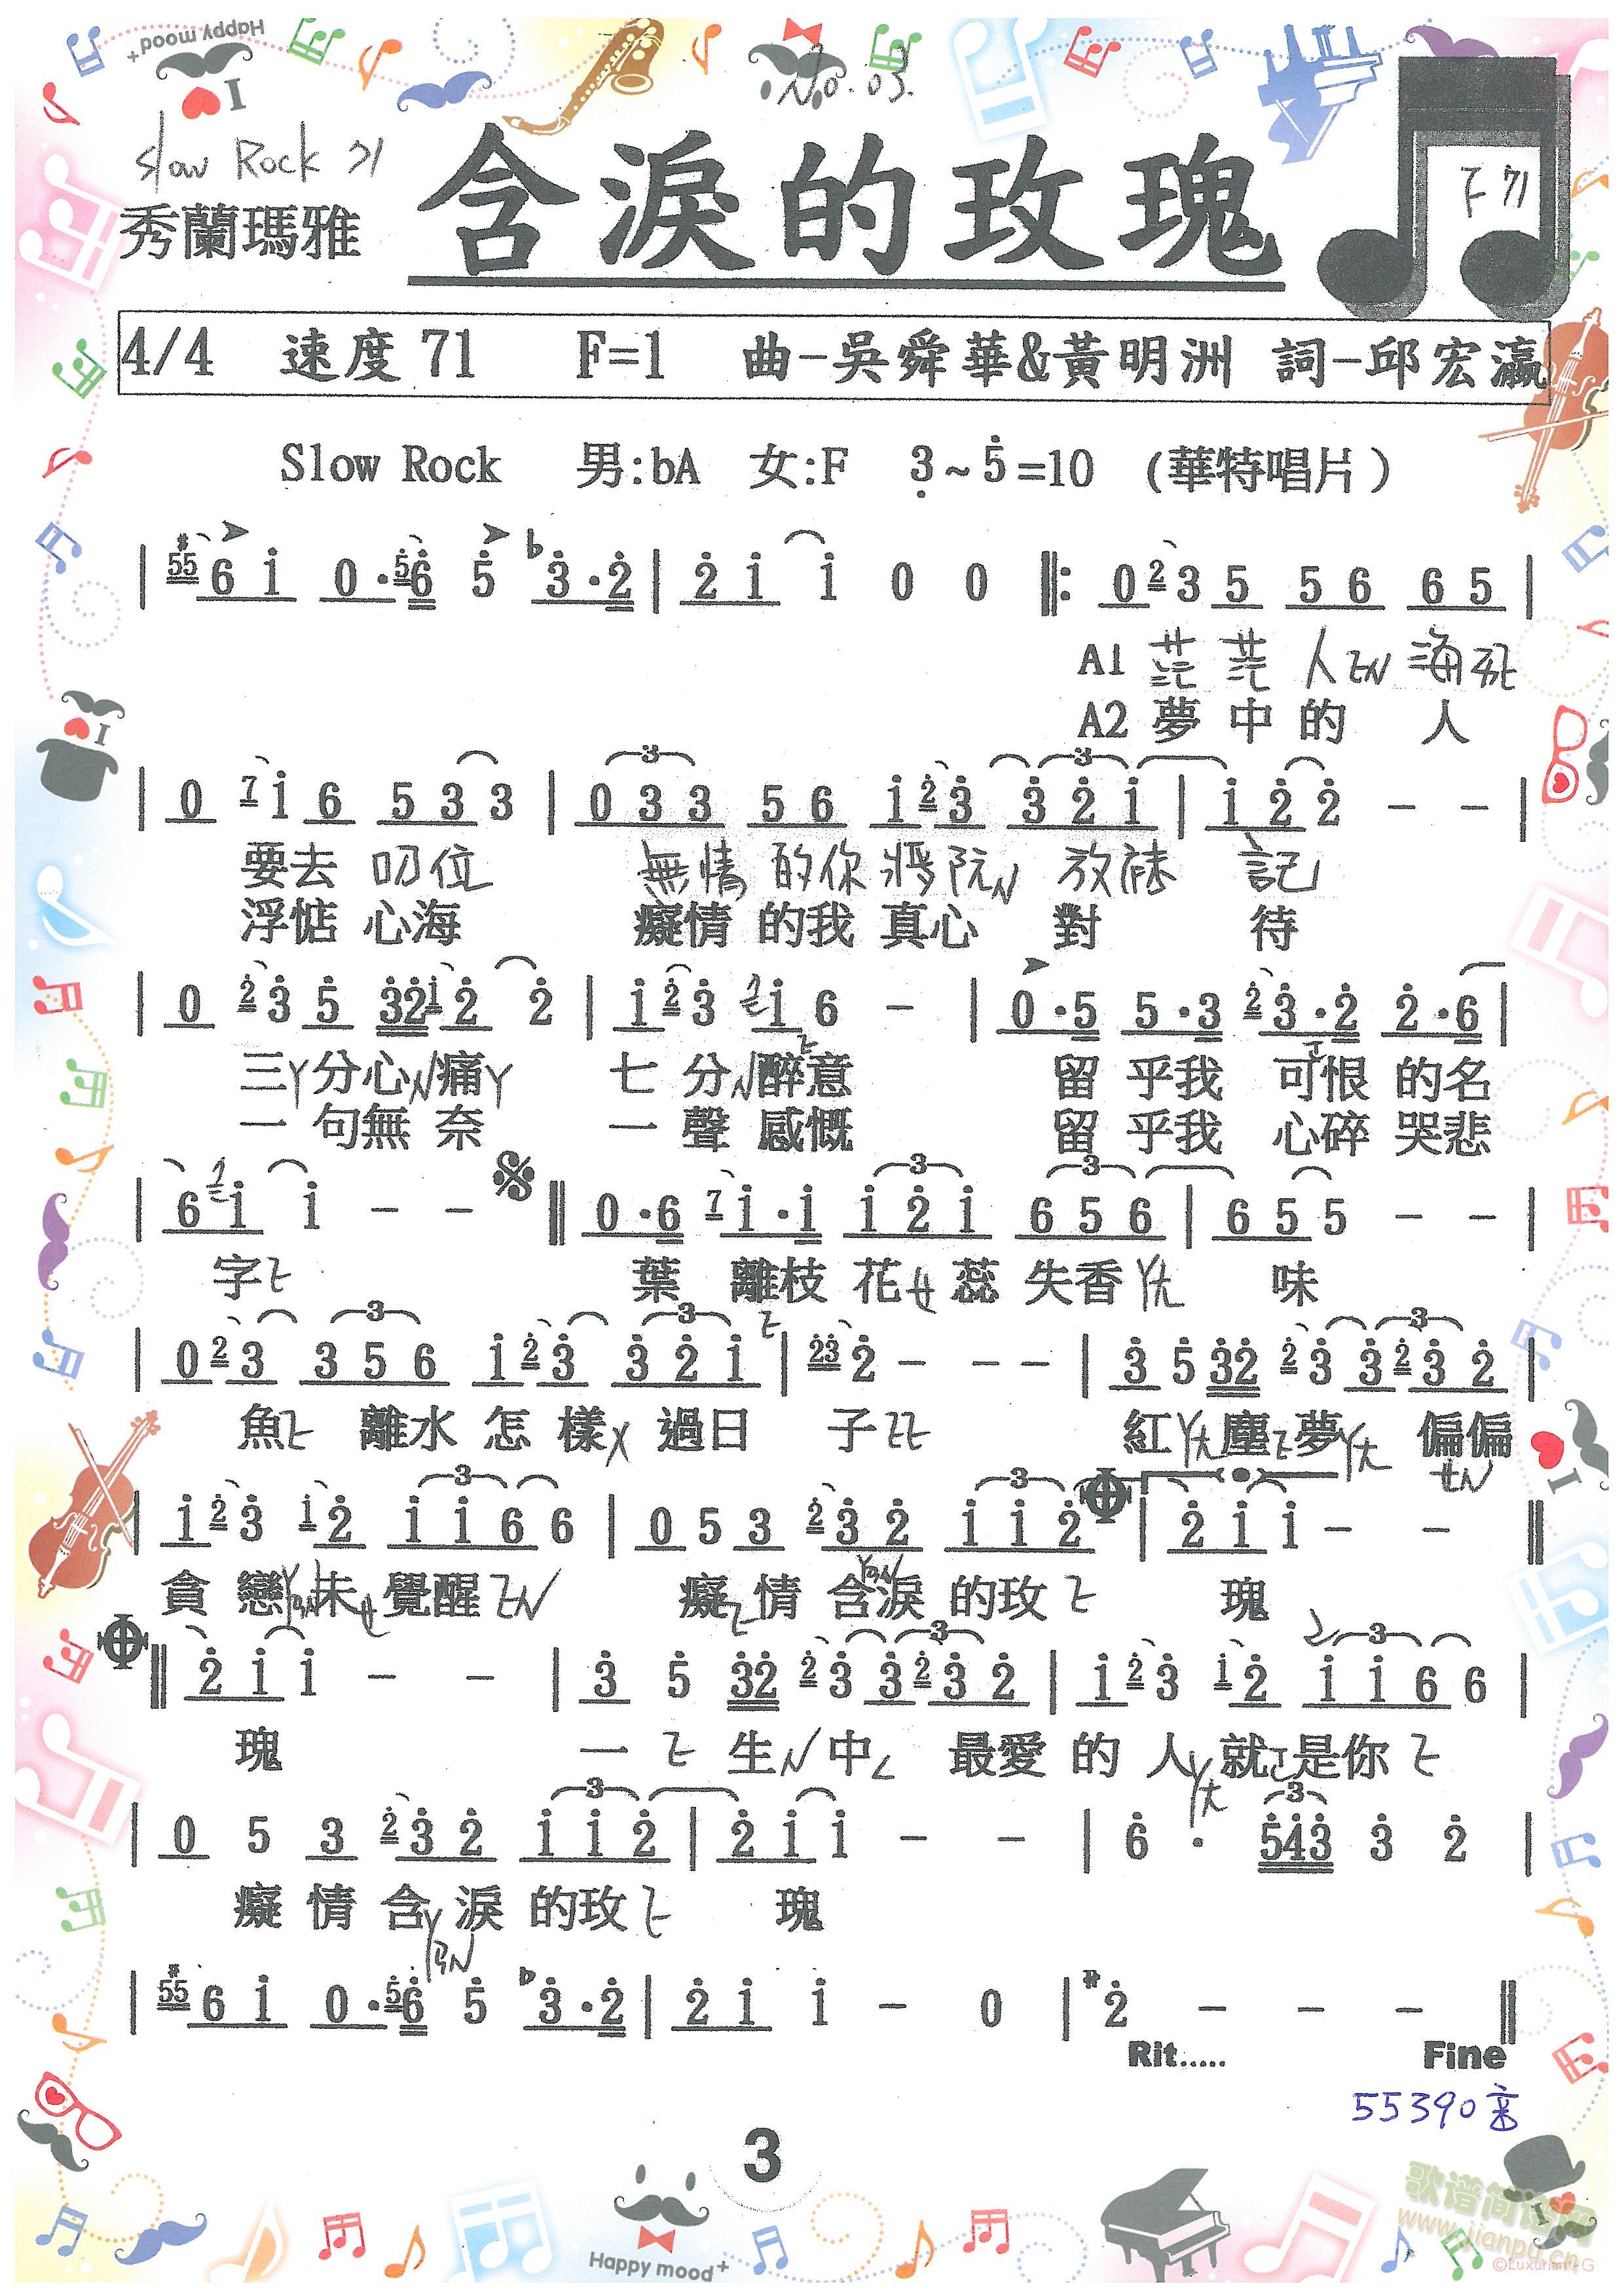 Happy mood+
I
No. 03.
Slow Rock 71
秀蘭瑪雅
含淚的玫瑰
F 71
4/4 速度 71 F=1 曲-吳舜華&黃明洲 詞-邱宏瀛
Slow Rock 男:bA 女:F 3~5=10 (華特唱片)
| #55 6 1 0·56 5 b3·2 | 2 1 1 0 0 ‖: 0 2 3 5 5 6 6 5 |
A1 茫 茫 人 海
A2 夢 中 的 人
| 0 7 1 6 5 3 3 | 0 3 3 5 6 1 2 3 3 2 1 | 1 2 2 - - |
要去 叨位 無情 的你 將阮 放袂 記
浮惦 心海 癡情 的我 真心 對 待
| 0 2 3 5 32 1 2 2 | 1 2 3 1 6 - | 0·5 5·3 2 3·2 2·6 |
三 分心 痛 七 分 醉意 留 乎我 可恨 的名
一 句無 奈 一 聲 感慨 留 乎我 心碎 哭悲
| 6 1 1 - - ‖ 0·6 7 1·1 1 2 1 6 5 6 | 6 5 5 - - |
字 葉 離枝 花 蕊 失香 味
| 0 2 3 3 5 6 1 2 3 3 2 1 | 23 2 - - - | 3 5 32 2 3 3 2 3 2 |
魚 離水 怎 樣 過日 子 紅 塵 夢 偏偏
| 1 2 3 1 2 1 1 6 6 | 0 5 3 2 3 2 1 1 2 | 2 1 1 - - ‖
貪 戀 未 覺醒 癡 情 含淚 的玫 瑰
‖ 2 1 1 - - | 3 5 32 2 3 3 2 3 2 | 1 2 3 1 2 1 1 6 6 |
瑰 一 生 中 最愛 的 人 就 是你
| 0 5 3 2 3 2 1 1 2 | 2 1 1 - - | 6 · 543 3 2 |
癡 情 含 淚 的玫 瑰
| #55 6 1 0·56 5 b3·2 | 2 1 1 - 0 | #2 - - - ‖
Rit..... Fine
55390
3
Happy mood+
歌谱简谱网
www.jianpu.cn
©Luxuriant-G